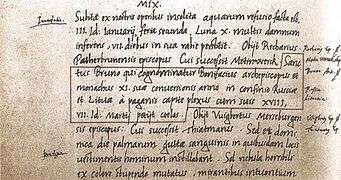 MIX.
Inundatio.
Subita ex nostris operibus insolita aquarum refusio facta est
III. Id. Ianuarij, feria secunda Luna X. multis damnum
inferens, VII. diebus in sua rabie Obijt Retharius
Patherbrunnensis episcopus Cui successit Meinwercus, Sanc
tus Bruno qui cognominatur Bonifacius archepiscopus et
monachus XI. suæ conversionis anno in confinio Rusciæ
et Lituæ à paganis capite plexus cum suis XVIII,
VII. Id. Martij petijt coelos. Obijt Vuigbertus Mersburgen
sis episcopus. Cui successit Thiatmarus. Sed et domi
nica die palmarum guttæ sanguinis in quibusdam locis
vestimentis hominum instillabant. Sol nebula horribili
ex colore stupendo mutatus, mirantibus intuentium